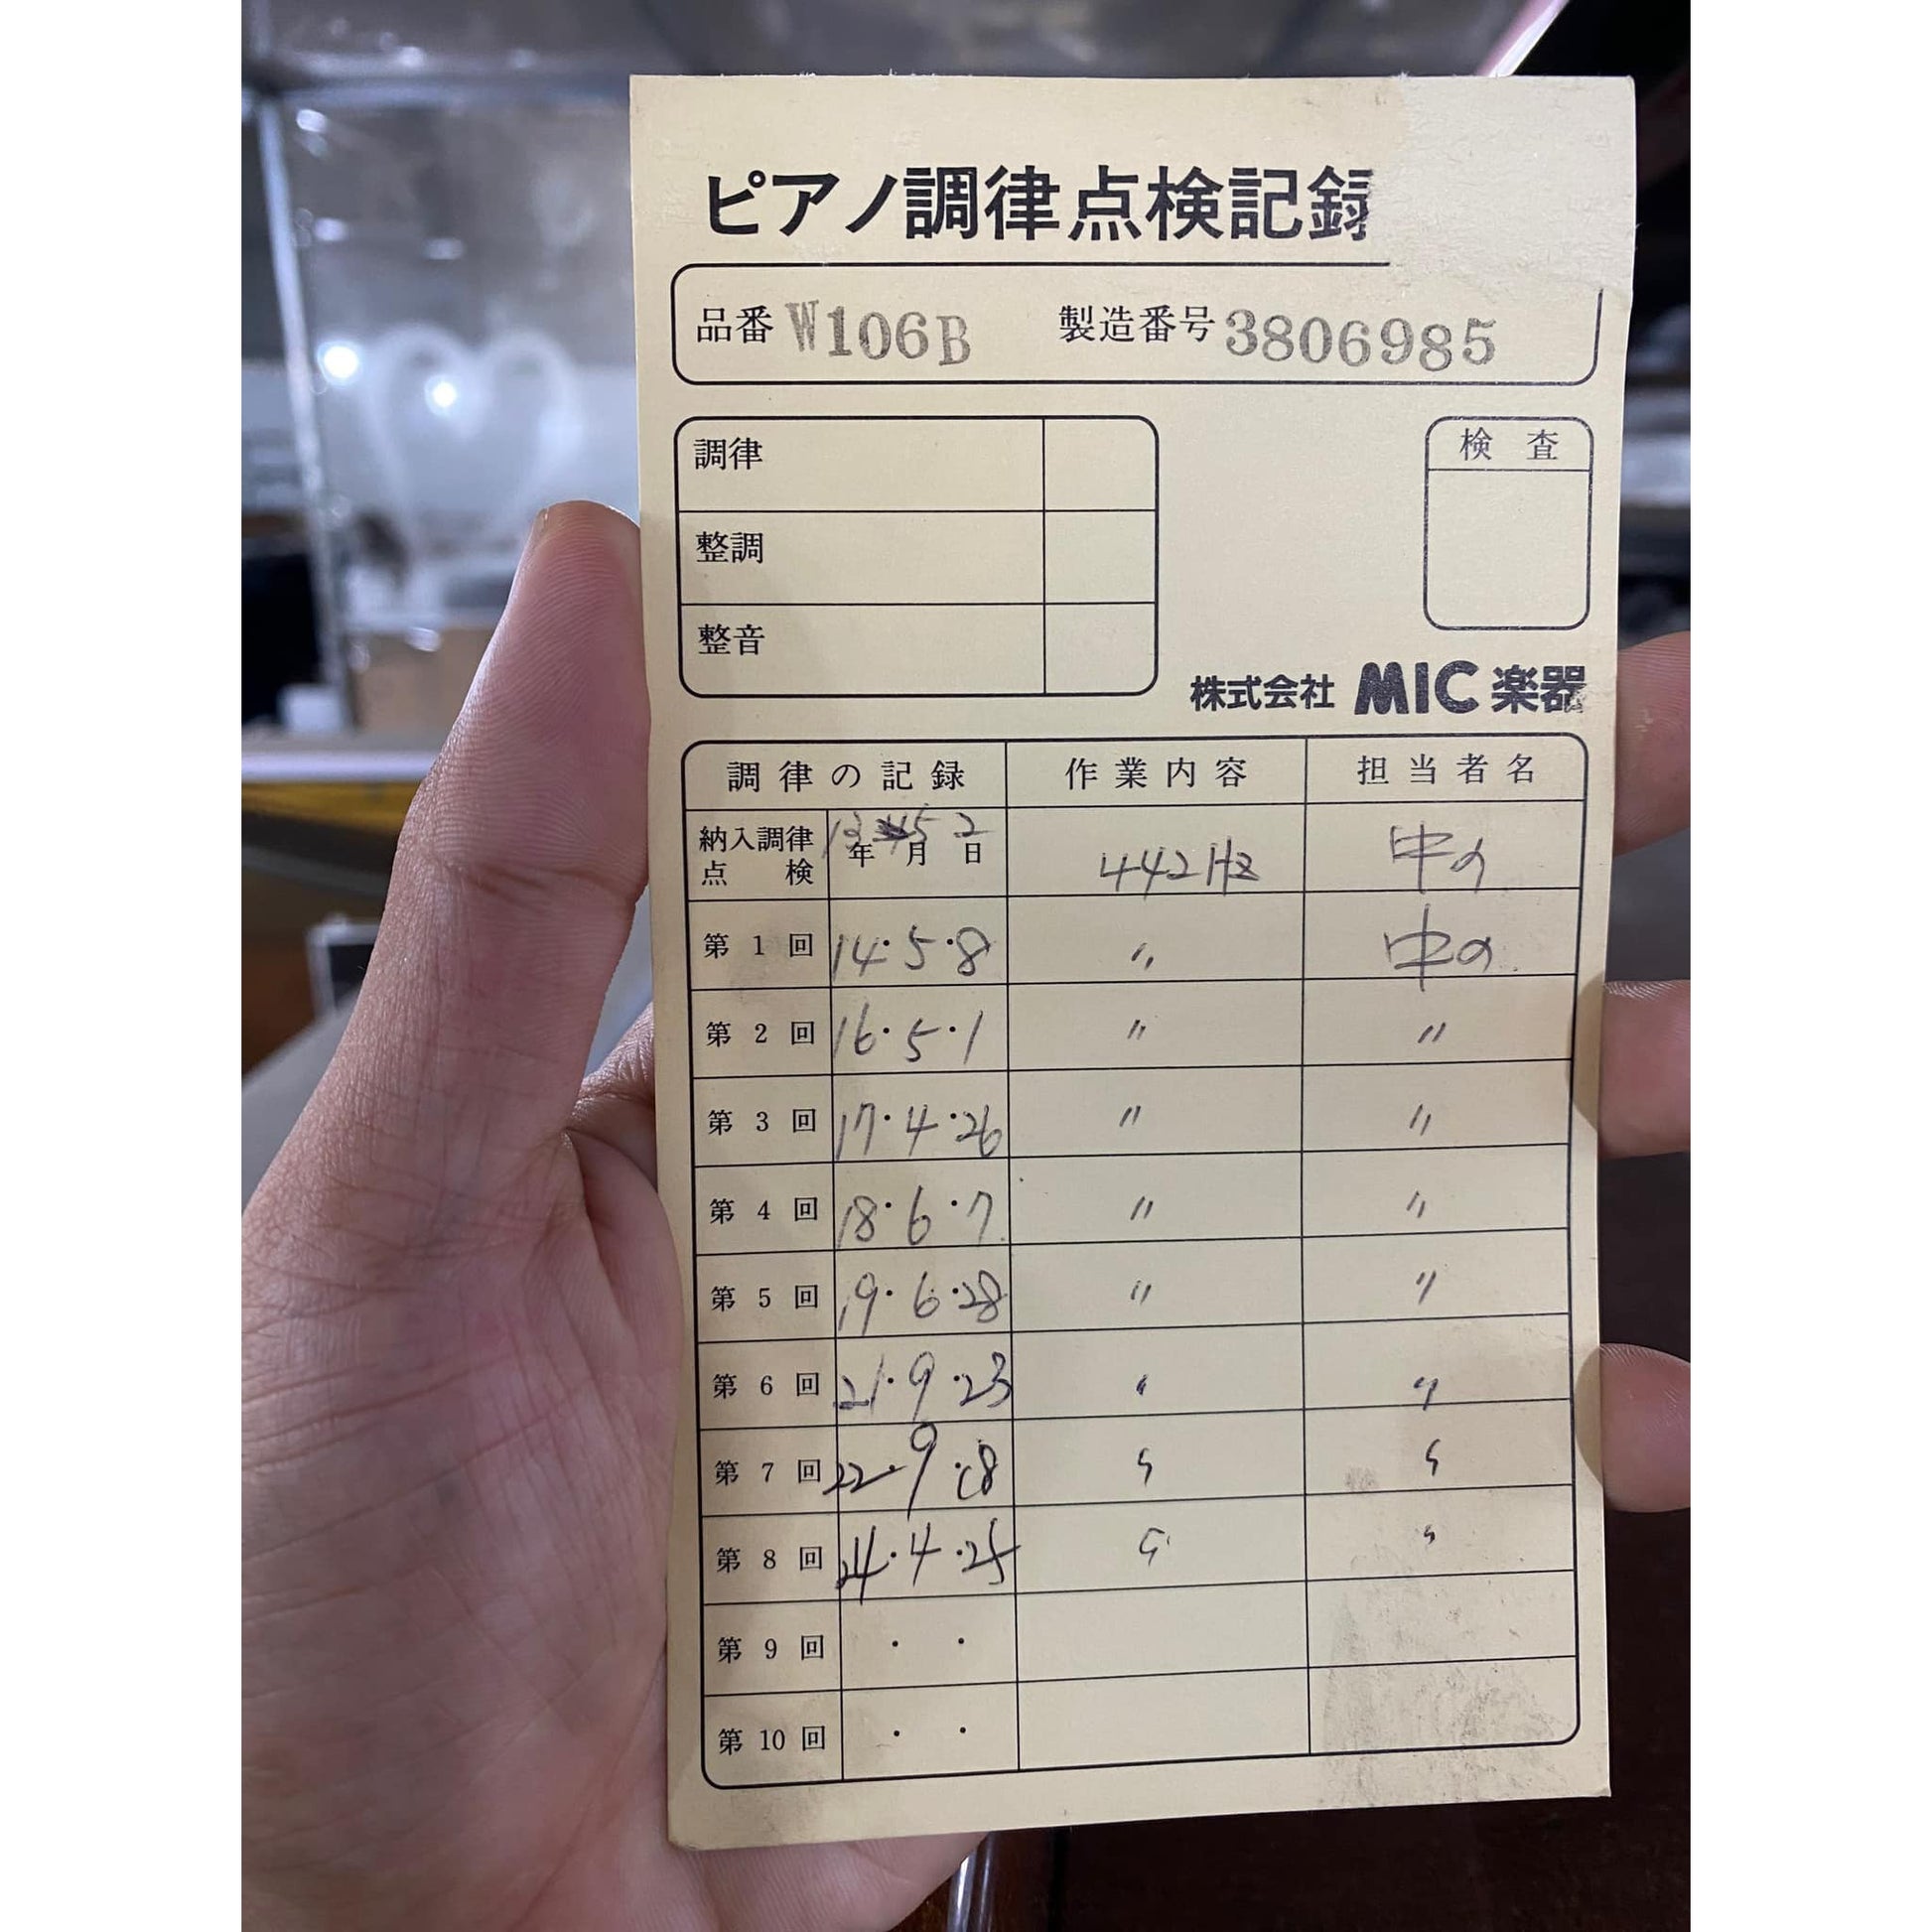 ピアノ調律点検記録
品番 W106B 製造番号 3806985
調律
整調
整音
検査
株式会社 MIC 楽器
調律の記録 作業内容 担当者名
納入調律点検 13年 5月 2日 442Hz 中の
第1回 14・5・8 〃 中の
第2回 16・5・1 〃 〃
第3回 17・4・26 〃 〃
第4回 18・6・7 〃 〃
第5回 19・6・28 〃 〃
第6回 21・9・23 〃 〃
第7回 22・9・18 〃 〃
第8回 24・4・25 〃 〃
第9回 ・ ・
第10回 ・ ・